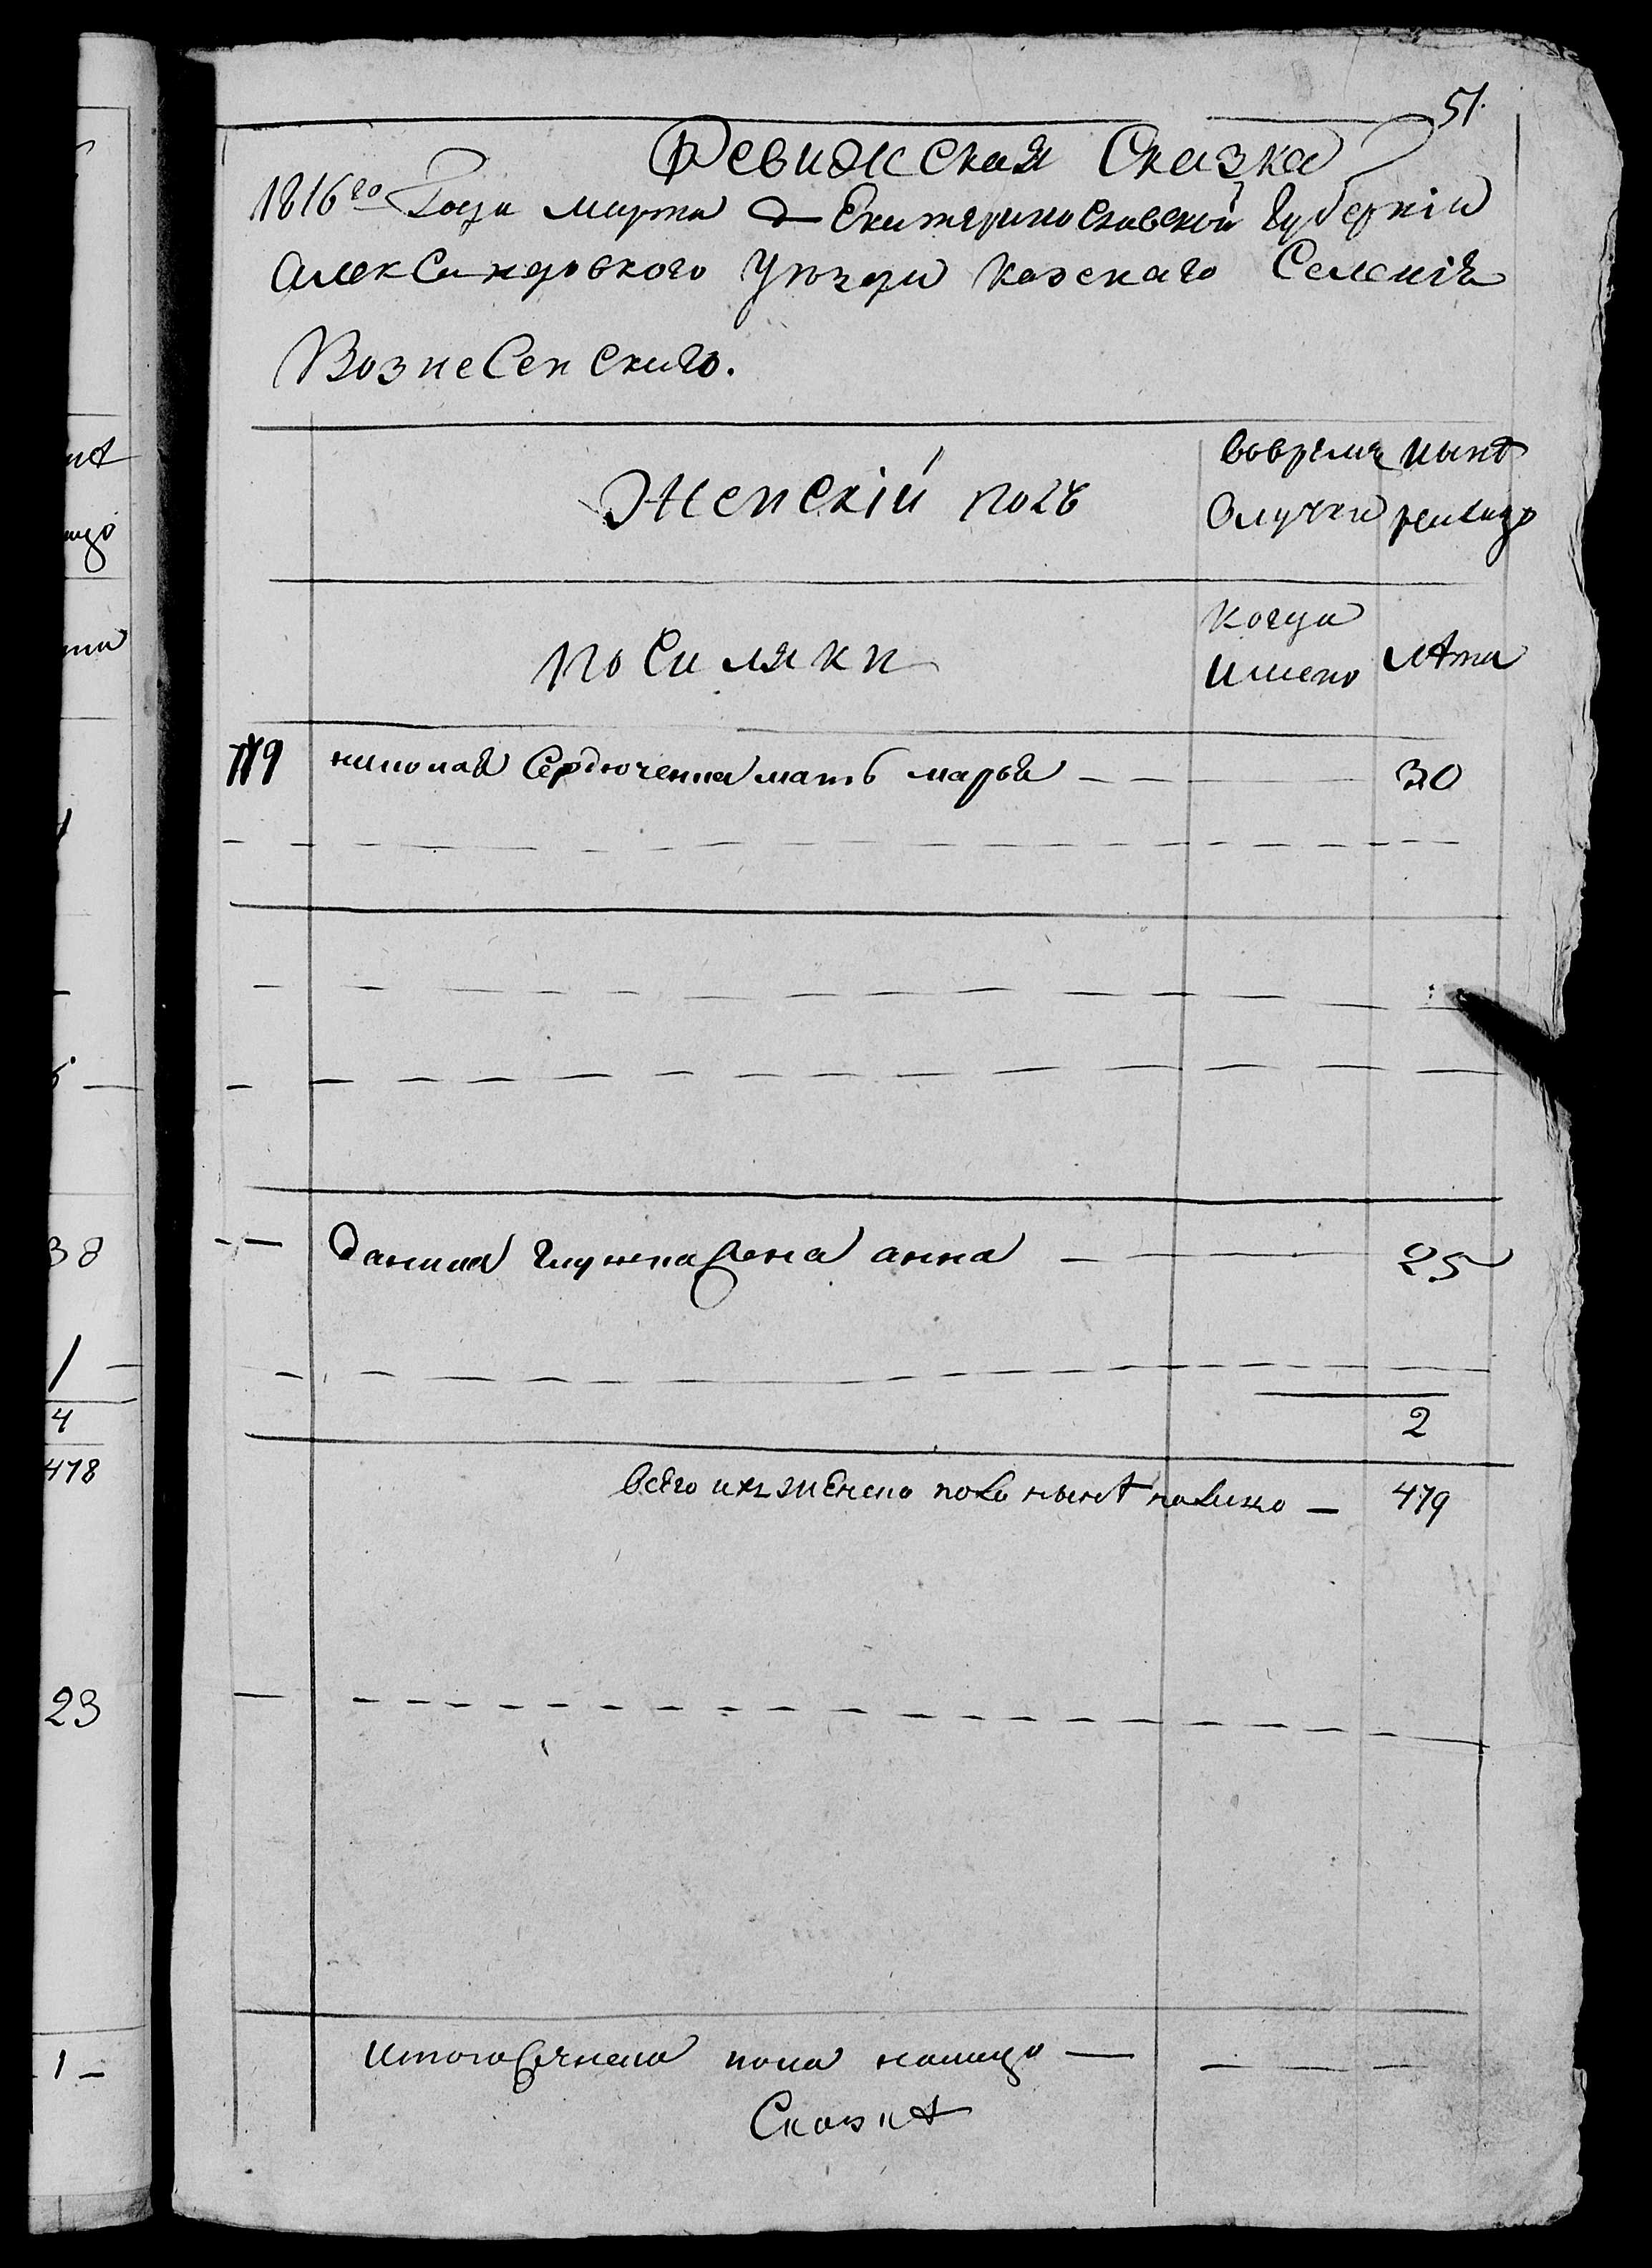 51.
Ревижская Сказка
1816го Года марта Екатеринославской губернiи
Александровского Уѣзда казенаго Селенiя
ВознеСенскаго.
Женскiй полъ
вовремя
Отлучки
нынѣ
налицо
посиляки
когда
имено
лѣта
119 николая Сердюченка мать марья — 30
— данила глушка жена анна — 25
2
всего ихъ женска пола нынѣ налицо — 479
итого женска пола налицо —
478
38
1
4
23
1 –